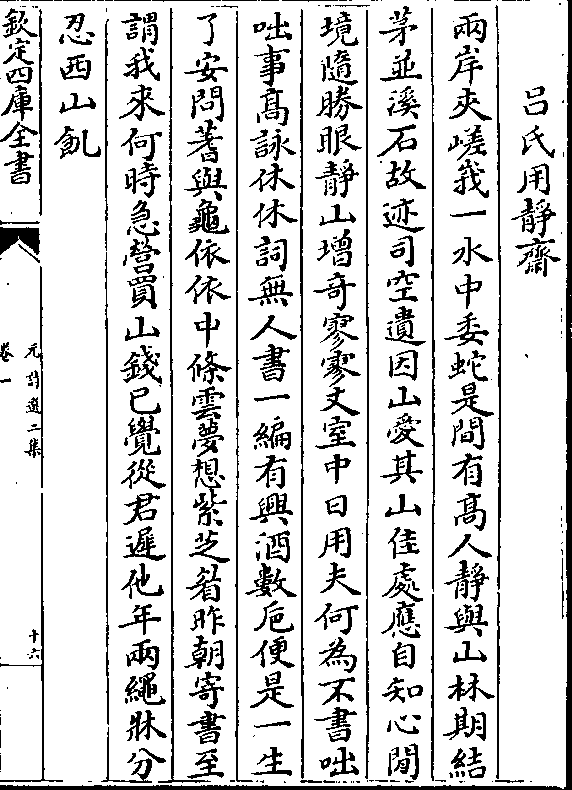 吕氏用靜齋
兩岸夾嵯峩一水中委蛇是間有髙人靜與山林期結
茅並溪石故迹司空遺因山愛其山佳處應自知心閒
境隨勝眼靜山增奇寥寥丈室中日用夫何為不書咄
咄事髙詠休休詞無人書一編有興酒數巵便是一生
了安問蓍與龜依依中條雲夢想紫芝睂昨朝寄書至
謂我來何時急營買山錢已覺從君遲他年兩繩牀分
忍西山飢
欽定四庫全書
元詩選二集
卷一
十六